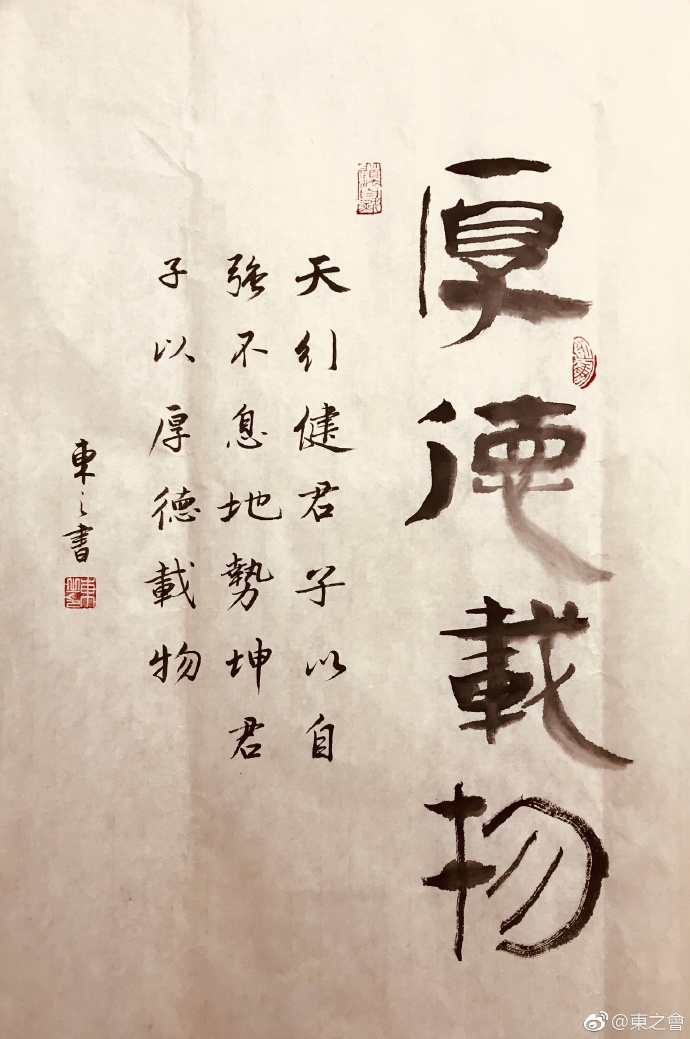 厚德載物
天行健君子以自
強不息地勢坤君
子以厚德載物
東之書
@東之會